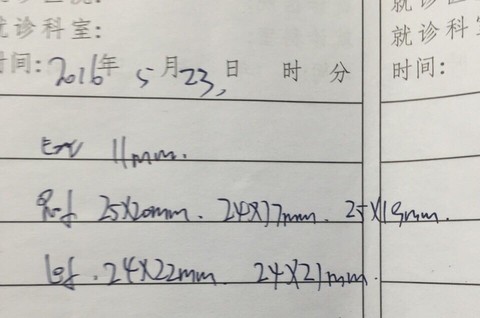 就诊科室:
时间: 2016年 5月23日 时 分
就诊科室
时间:
Em 11mm.
R-f 25X20mm. 24X17mm. 25X19mm.
Lof. 24X22mm. 24X21mm.